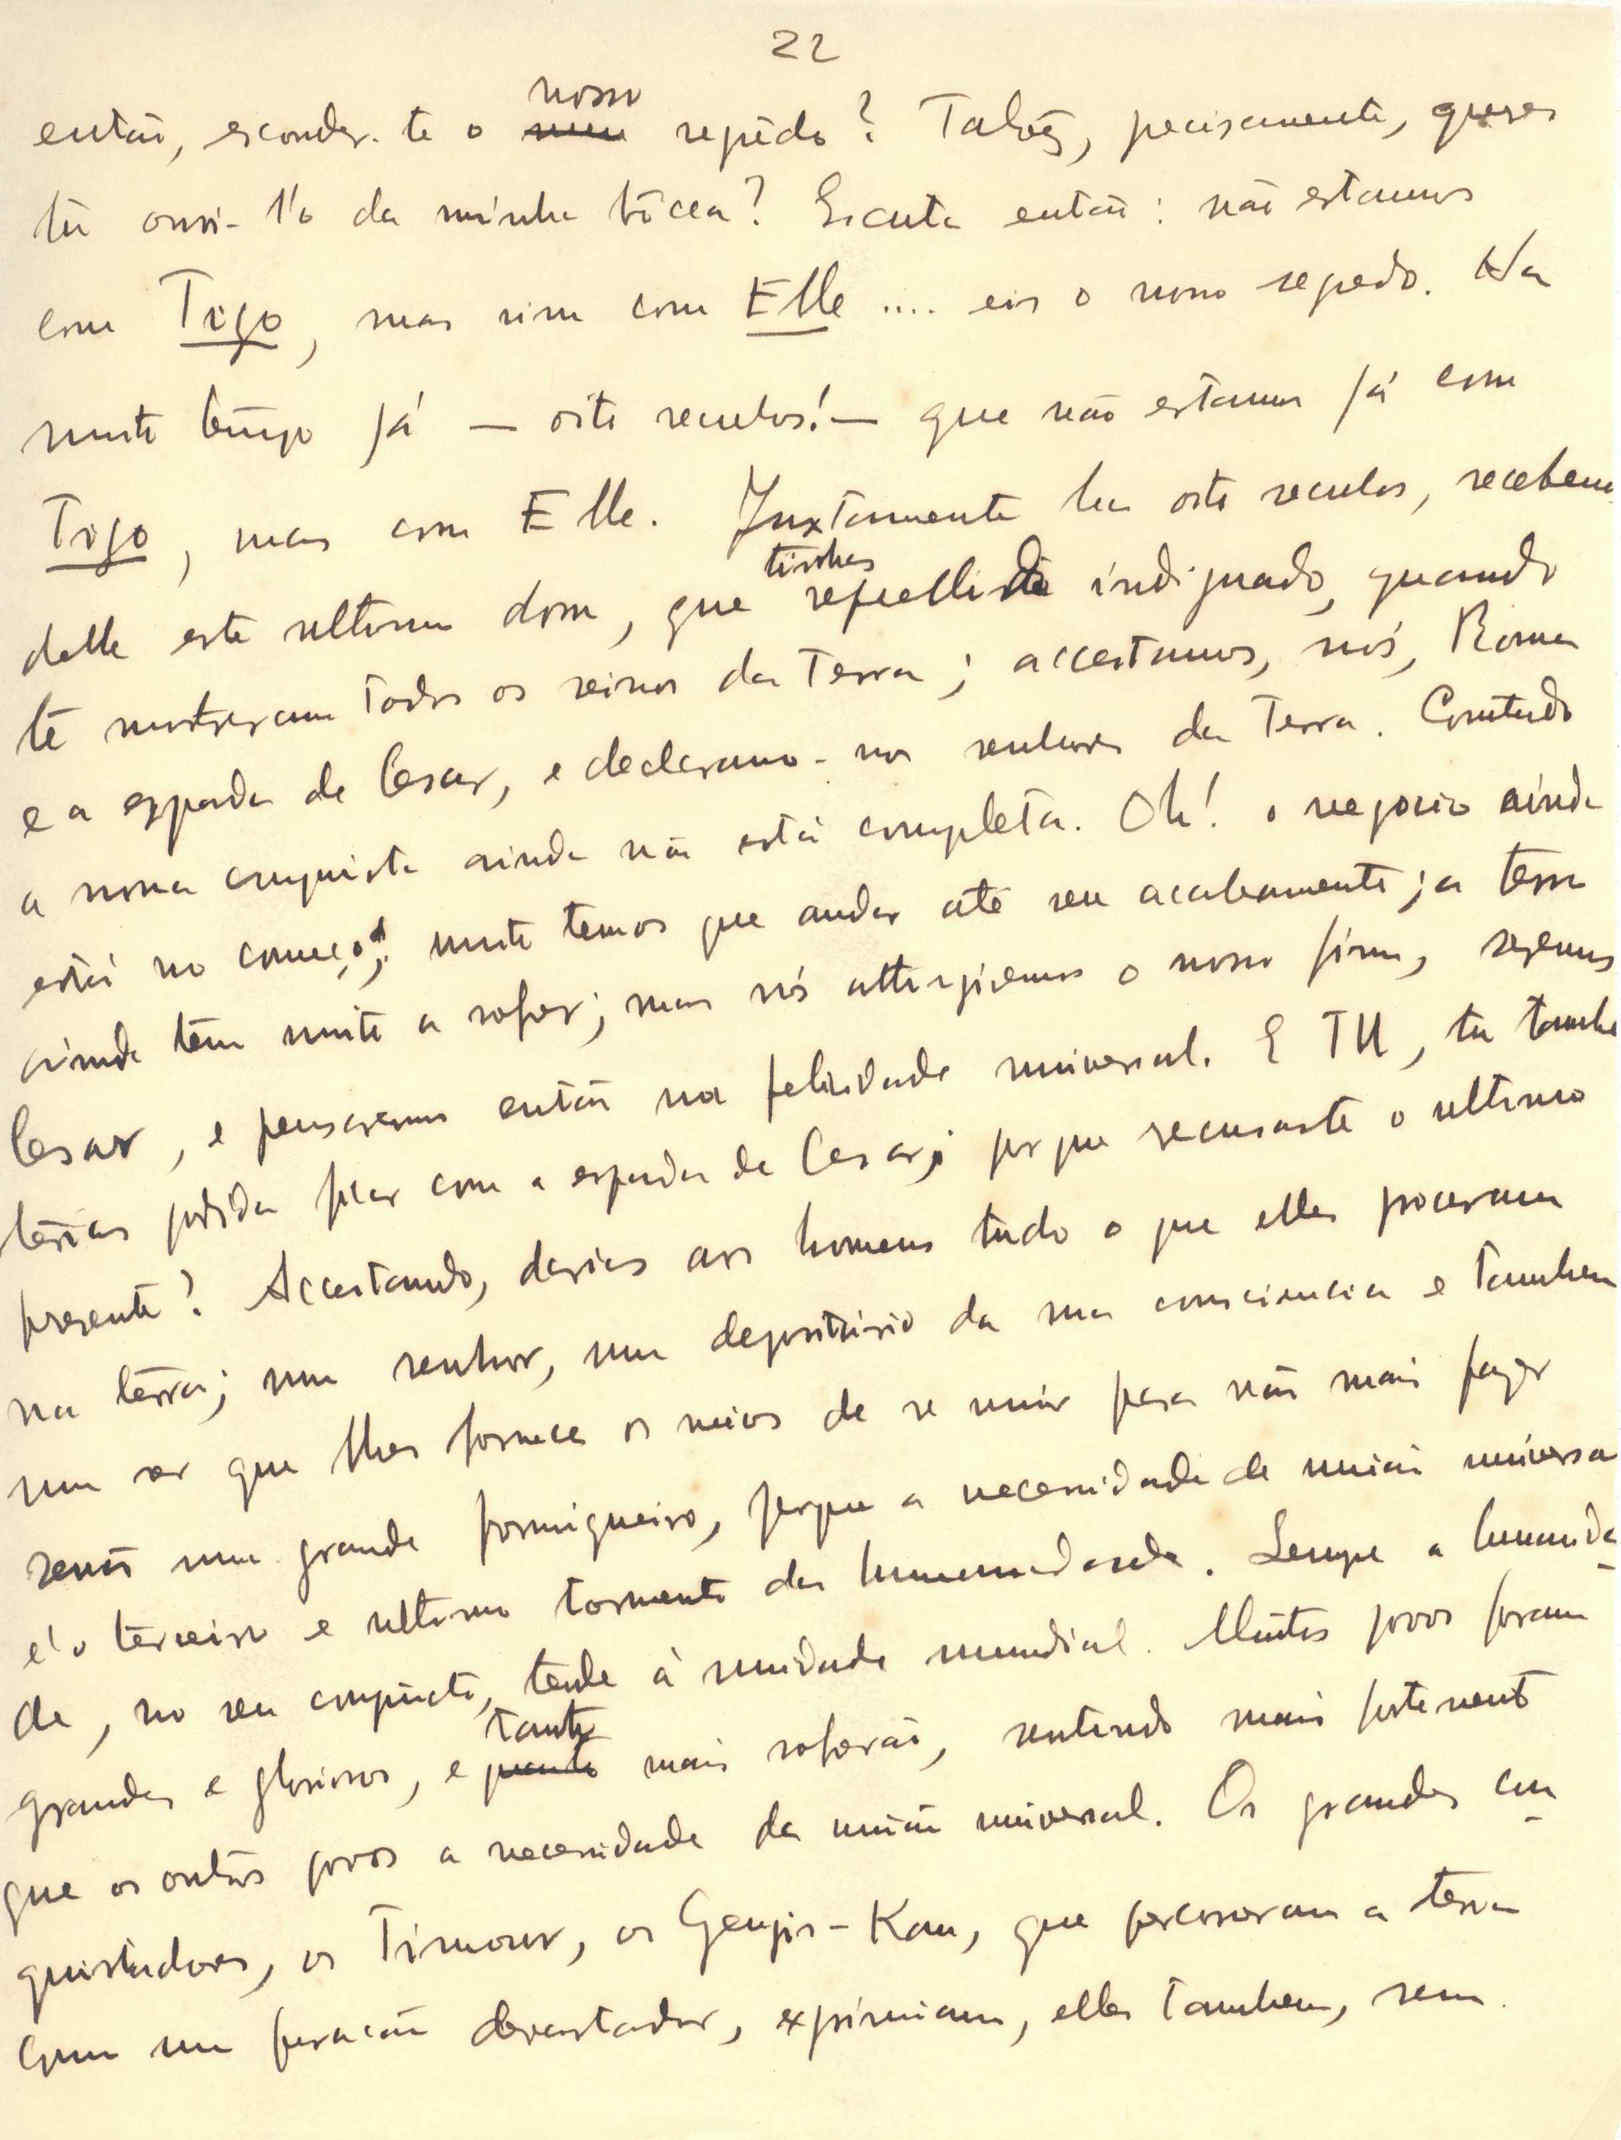 22
nosso
então, esconder-te o meu segrêdo? Talvêz, precisamente, queres
tú ouvi-l'o da minha bôcca? Escuta então: não estamos
com Tigo, mas sim com Elle .... eis o nosso segredo. Ha
muito têmpo já — oito seculos! — que não estamos já com
Tigo, mas com Elle. Juxtamente ha oito seculos, recebemos
delle este ultimo dom, que
tinhas
repellido indignado, quando
te mostraram todos os reinos da Terra; acceitamos, nós, Roma
e a espada de Cesar, e declaramo-nos senhores da Terra. Comtudo
a nossa conquista ainda não está completa. Oh! o negocio ainda
está no começo; muito temos que andar até seu acabamento; a terra
ainda têm muito a sofrer; mas nós attingiremos o nosso fim, seremos
Cesar, e pensaremos então na felicidade universal. E TU, tu tambem
terias podido ficar com a espada de Cesar; por que recusaste o ultimo
presente? Acceitando, darias aos homens tudo o que elles procuram
na têrra; um senhor, um depositário da sua consciencia e tambem
um ser que lhes fornece os meios de se unir para não mais fazer
senão um grande formigueiro, porque a necessidade de união universal
é o terceiro e ultimo tormento da humanidade. Sempre a humanida-
de, no seu conjuncto, tende à unidade mundial. Muitos povos foram
tanto
grandes e gloriosos, e quanto mais sofrerão, sentindo mais fortemente
que os outros povos a necessidade da união universal. Os grandes con-
quistadores, os Timour, os Gengis-Kan, que percorreram a terra
como um furacão devastador, exprimiam, elles tambem, sem